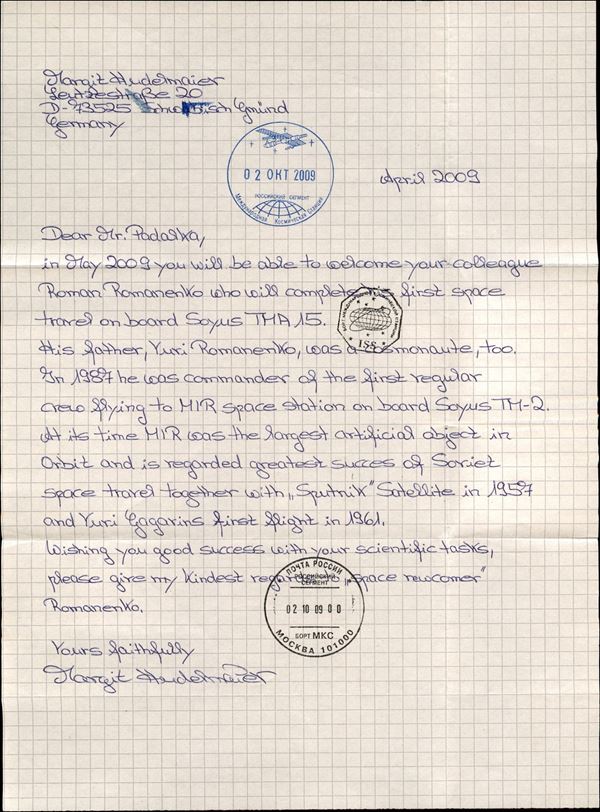 Margit Hudelmaier
Leutzestraße 20
D-73525 Schwäbisch Gmünd
Germany
02 ОКТ 2009
РОССИЙСКИЙ СЕГМЕНТ
Международная Космическая Станция
April 2009
Dear Mr. Padalka,
in May 2009 you will be able to welcome your colleague
Roman Romanenko who will complete his first space
travel on board Soyus TMA 15.
ISS
His father, Yuri Romanenko, was a cosmonaute, too.
In 1987 he was commander of the first regular
crew flying to MIR space station on board Soyus TM-2.
At its time MIR was the largest artificial object in
Orbit and is regarded greatest succes of Soviet
space travel together with „Sputnik" Satellite in 1957
and Yuri Gagarins first flight in 1961.
Wishing you good success with your scientific tasks,
please give my kindest regards to „space newcomer"
Romanenko.
ПОЧТА РОССИИ
РОССИЙСКИЙ
СЕГМЕНТ
02 10 09 00
БОРТ МКС
МОСКВА 101000
Yours faithfully
Margit Hudelmaier